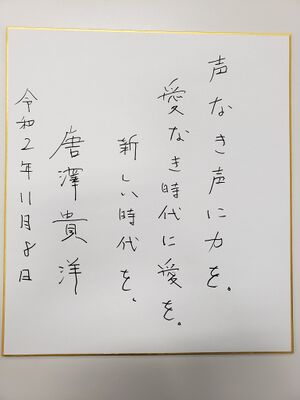 声なき声に力を。
愛なき時代に愛を。
新しい時代を、
唐澤貴洋
令和2年11月8日